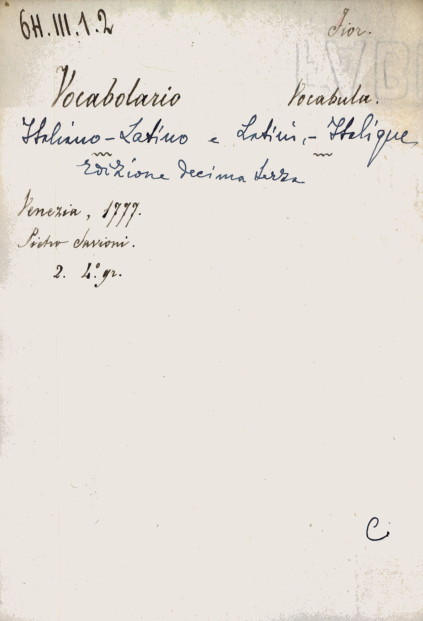 6H.III.1.2 Fior.
Vocabolario Vocabula.
Italiano-Latino e Latin,- Italique
Edizione decima terza
Venezia, 1777.
Pietro Savioni.
2. 4.° gr.
C